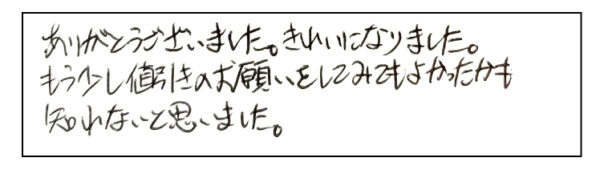 ありがとうございました。きれいになりました。
もう少し値引きのお願いをしてみてもよかったかも
知れないと思いました。